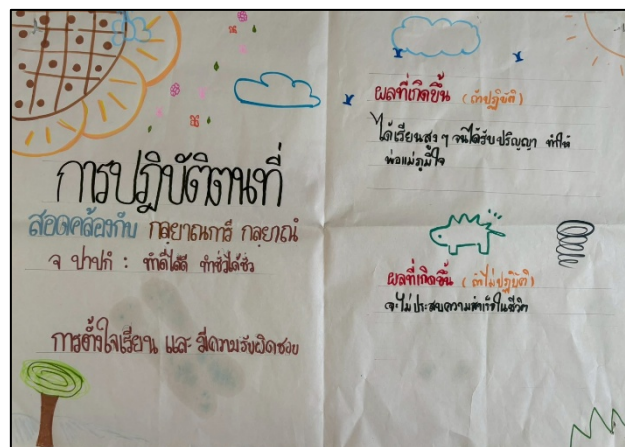 การปฏิบัติตนที่
สอดคล้องกับ กลฺยาณการี กลฺยาณํ
จ ปาปกํ : ทำดีได้ดี ทำชั่วได้ชั่ว
การตั้งใจเรียน และ มีความรับผิดชอบ
ผลที่เกิดขึ้น (ถ้าปฏิบัติ)
ได้เรียนสูง ๆ จนได้รับปริญญา ทำให้
พ่อแม่ภูมิใจ
ผลที่เกิดขึ้น (ถ้าไม่ปฏิบัติ)
จะไม่ประสบความสำเร็จในชีวิต